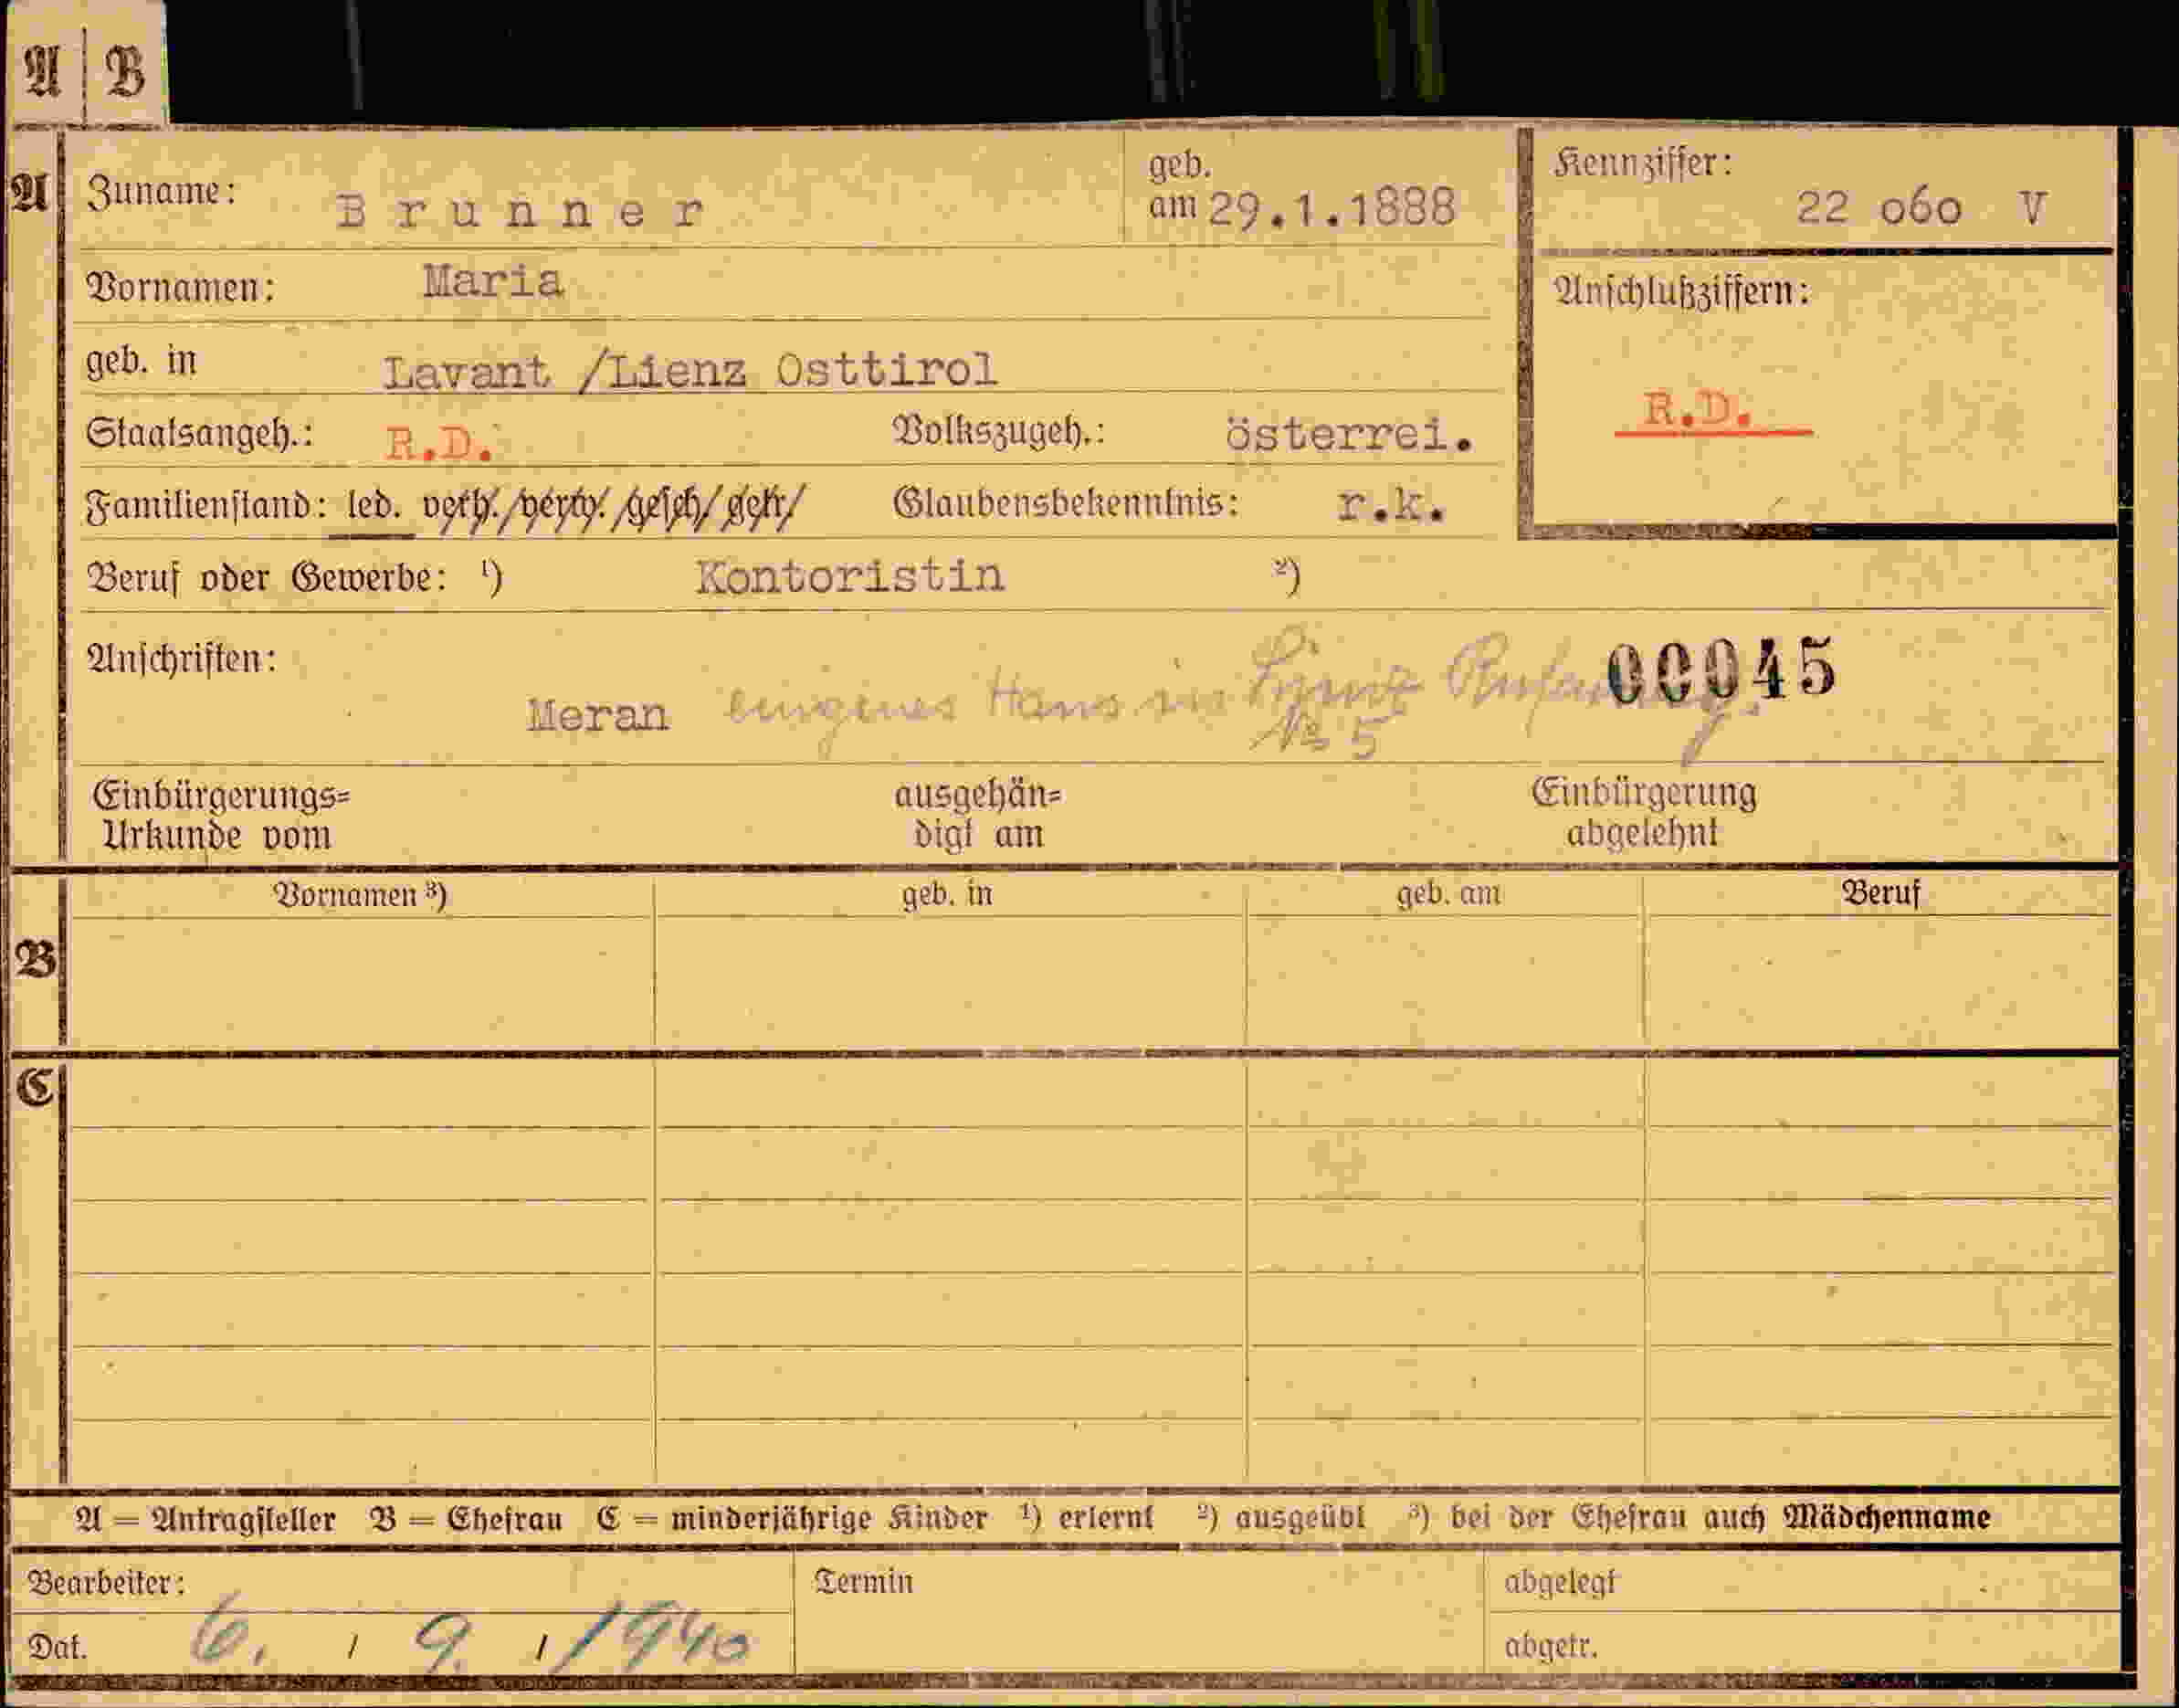 A B
A Zuname: Brunner geb. am 29.1.1888 Kennziffer: 22 060 V
Vornamen: Maria Anschlußziffern:
geb. in Lavant /Lienz Osttirol
R.D.
Staatsangeh.: R.D. Volkszugeh.: österrei.
Familienstand: led. verh. verw. gesch. getr. Glaubensbekenntnis: r.k.
Beruf oder Gewerbe: ¹) Kontoristin ²)
Anschriften: 00045
Meran eigenes Haus in Lienz
No 5
Einbürgerungs= ausgehän= Einbürgerung
Urkunde vom digt am abgelehnt
Vornamen ³) geb. in geb. am Beruf
B
C
A = Antragsteller B = Ehefrau C = minderjährige Kinder ¹) erlernt ²) ausgeübt ³) bei der Ehefrau auch Mädchenname
Bearbeiter: Termin abgelegt
Dat. 6. / 9. / 1940 abgetr.